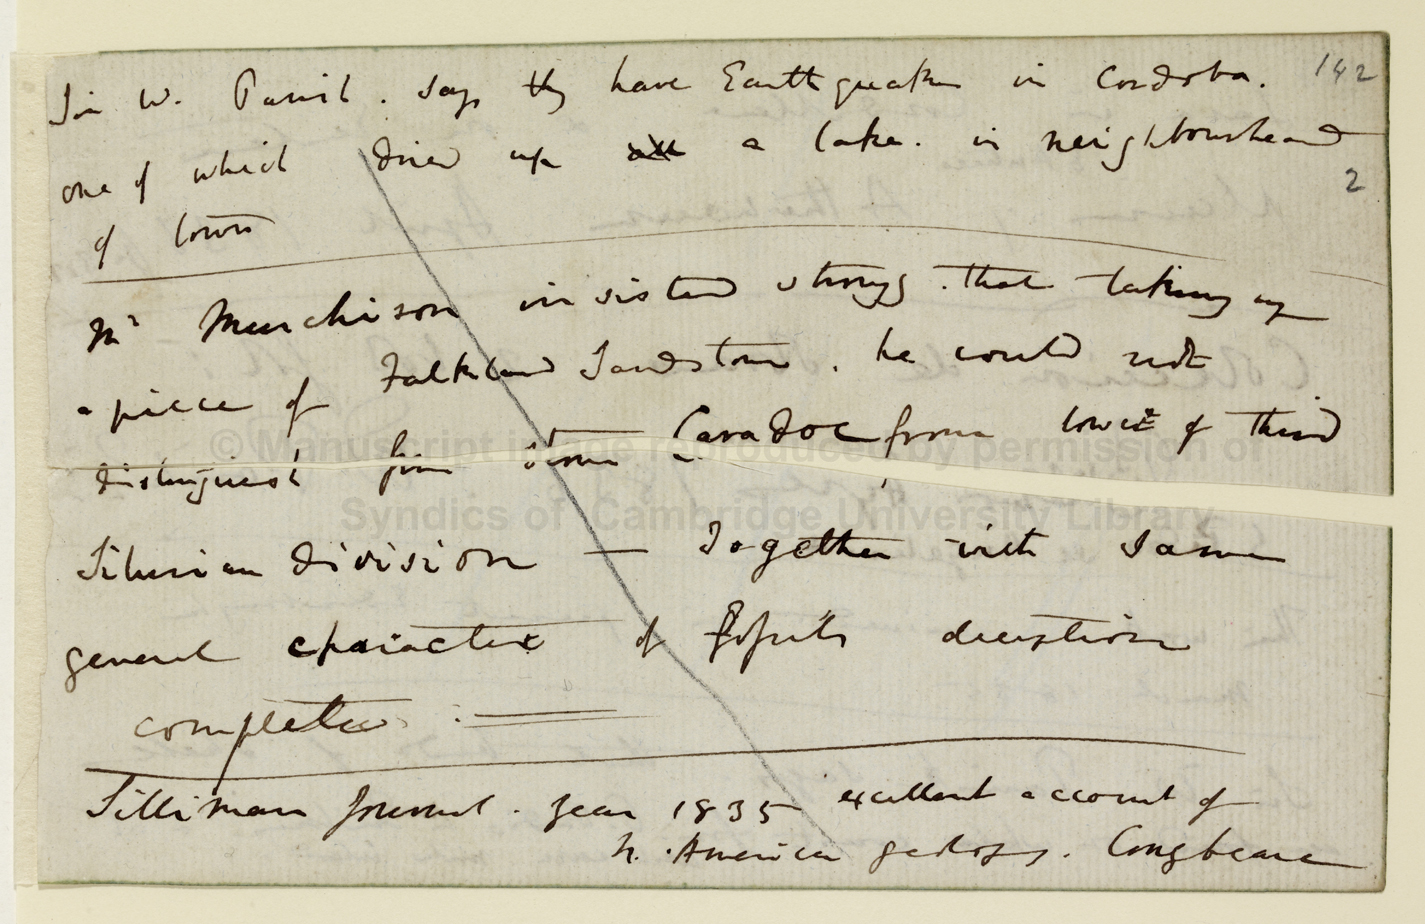 Sir W. Parish. says they have Earthquakes in Cordoba. 142
one of which dried up all a lake. in neighbourhead
2
of town
Mr Murchison insisted strongly. that taking up
a piece of Falkland Sandstone. he could not
distinguish from some Caradoc from lowest of third
© Manuscript image reproduced by permission of
Syndics of Cambridge University Library
Silurian division — Together with same
general character of fossils deception
complete:—
Silliman Journal. year 1835 excellent account of
N. American geology. Conybeare